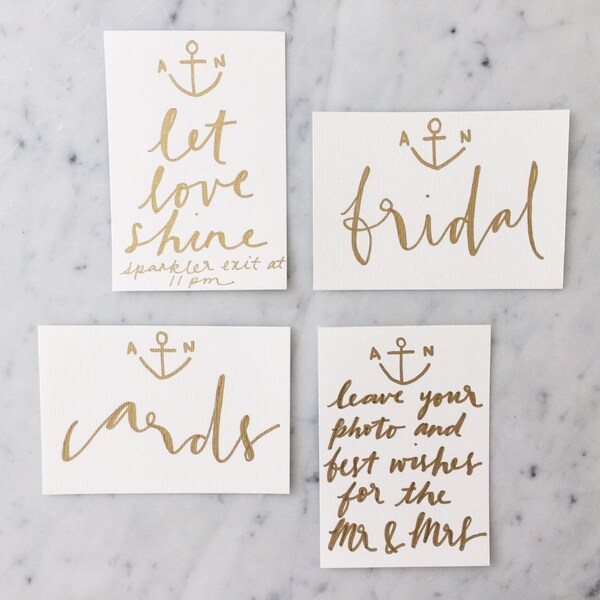 A N
let
love
shine
sparkler exit at
11 pm
A N
bridal
A N
cards
A N
leave your
photo and
best wishes
for the
Mr & Mrs